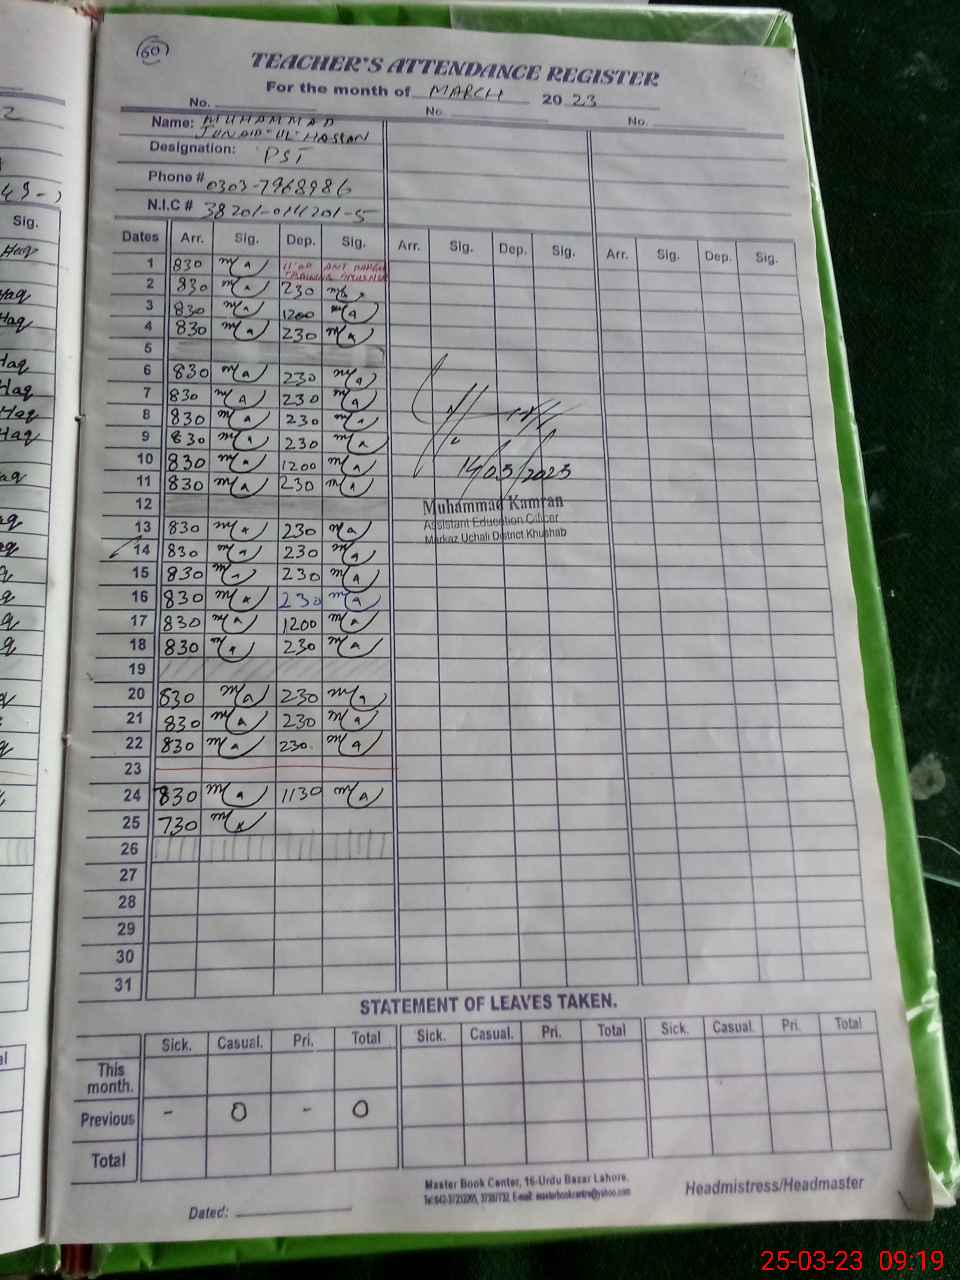 60
TEACHER'S ATTENDANCE REGISTER
For the month of MARCH 2023
No. No. No.
Name: MUHAMMAD
JUNAID UL HASSAN
Designation: PST
Phone # 0303-7968986
N.I.C #
Dates Arr. Sig. Dep. Sig. Arr. Sig. Dep. Sig. Arr. Sig. Dep. Sig.
1 830 11:00
2 830 230
3 830 1200
4 830 230
5
6 830 230
7 830 230
8 830 230
9 830 230
10 830 1200
11 830 230
12
13 830 230
14 830 230
15 830 230
16 830 230
17 830 1200
18 830 230
19
20 830 230
21 830 230
22 830 230
23
24 830 1130
25 730
26
27
28
29
30
31
14/03/2023
Muhammad Kamran
Assistant Education Officer
Markaz Uchali District Khushab
STATEMENT OF LEAVES TAKEN.
Sick. Casual. Pri. Total Sick. Casual. Pri. Total Sick. Casual. Pri. Total
This
month.
Previous - 0 - 0
Total
Master Book Center, 16-Urdu Bazar Lahore.
Dated:
Headmistress/Headmaster
Sig.
Haq
Haq
Haq
Haq
Haq
Haq
25-03-23 09:19